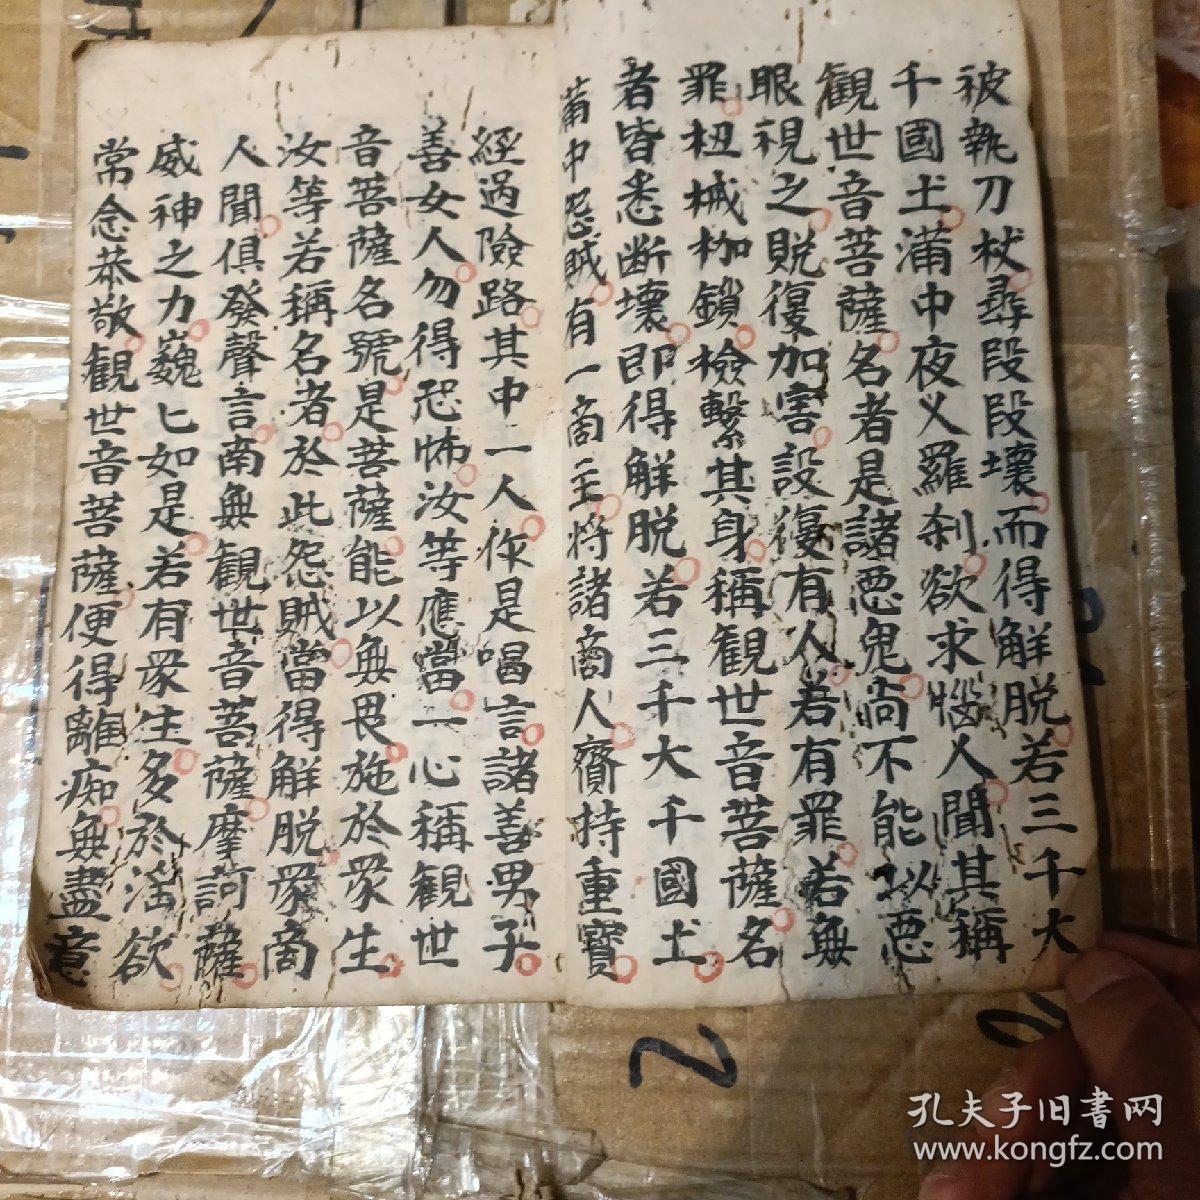 被執刀杖尋段段壞而得解脫若三千大
千國土滿中夜义羅刹欲求惱人聞其稱
觀世音菩薩名者是諸惡鬼尚不能以惡
眼視之貺復加害設復有人若有罪若無
罪杻械枷鎖檢繫其身稱觀世音菩薩名
者皆悉断壞即得解脫若三千大千國土
滿中怨賊有一商主将諸商人齎持重寶
經過險路其中一人作是唱言諸善男子
善女人勿得恐怖汝等應當一心稱觀世
音菩薩名號是菩薩能以無畏施於眾生
汝等若稱名者於此怨賊當得解脫眾商
人聞俱發聲言南無觀世音菩薩摩訶薩
威神之力巍匕如是若有眾生多於淫欲
常念恭敬觀世音菩薩便得離痴無盡意
2
孔夫子旧書网
www.kongfz.com